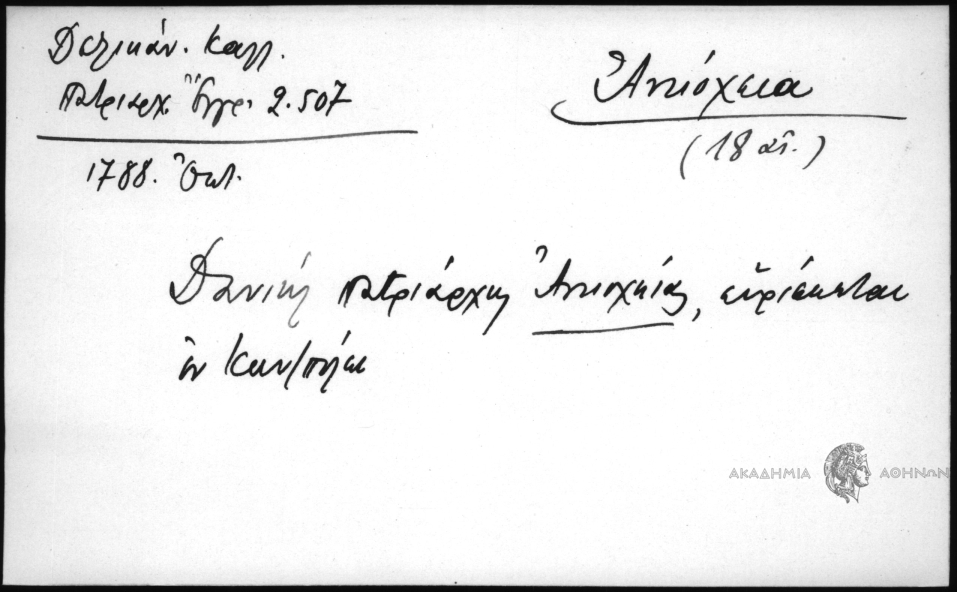 Δελικάν. Καλλ.
Πατριαρχ. Ἔγγρ. 2.507
Ἀντιόχεια
(18 αἰ.)
1788. Ὀκτ.
Δανιήλ πατριάρχης Ἀντιοχείας, εὑρίσκεται
ἐν Κων/πόλει
ΑΚΑΔΗΜΙΑ ΑΘΗΝΩΝ